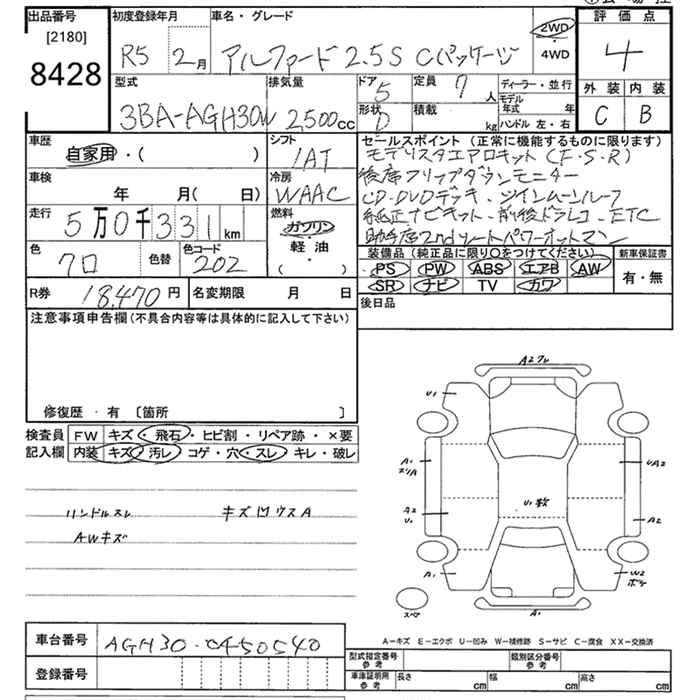 出品番号 初度登録年月 車名・グレード 評価点
[2180]
8428
R5 2月 アルファード 2.5S Cパッケージ 2WD・4WD 4
型式 排気量 ドア 5 定員 7人 ディーラー・並行 外装 内装
3BA-AGH30W 2500cc 形状 D 積載 kg モデル年式 年 C B
ハンドル 左・右
車歴 シフト セールスポイント(正常に機能するものに限ります)
自家用・( ) IAT モデリスタエアロキット(F・S・R)
車検 冷房 後席フリップダウンモニター
年 月( 日) WAAC CD・DVDデッキ、ツインムーンルーフ
走行 燃料 純正ナビキット、前後ドラレコ、ETC
5万0千331km ガソリン 助手席2ndシートパワーオットマン
軽油
・( )
色 色替 色コード 装備品(純正品に限り○をつけてください) 新車保証書
クロ 202 PS PW ABS エアB AW 有・無
R券 18,470円 名変期限 月 日 SR ナビ TV カワ
注意事項申告欄(不具合内容等は具体的に記入して下さい) 後日品
修復歴・有〔箇所 〕
検査員 FW キズ・飛石・ヒビ割・リペア跡・×要
記入欄 内装 キズ・汚レ コゲ・穴・スレ・キレ・破レ
ハンドルスレ キズ凹ウスA
AWキズ
A2フレ
U1
A1
スリA
UA2
A2
U1
U1数
A2
A1
W2
ボケ
スペア
A1
A-キズ E-エクボ U-凹み W-補修跡 S-サビ C-腐食 XX-交換済
車台番号 AGH30-0450540
登録番号
型式指定番号 参考 類別区分番号 参考
車庫証明用 参考 長さ cm 幅 cm 高さ cm